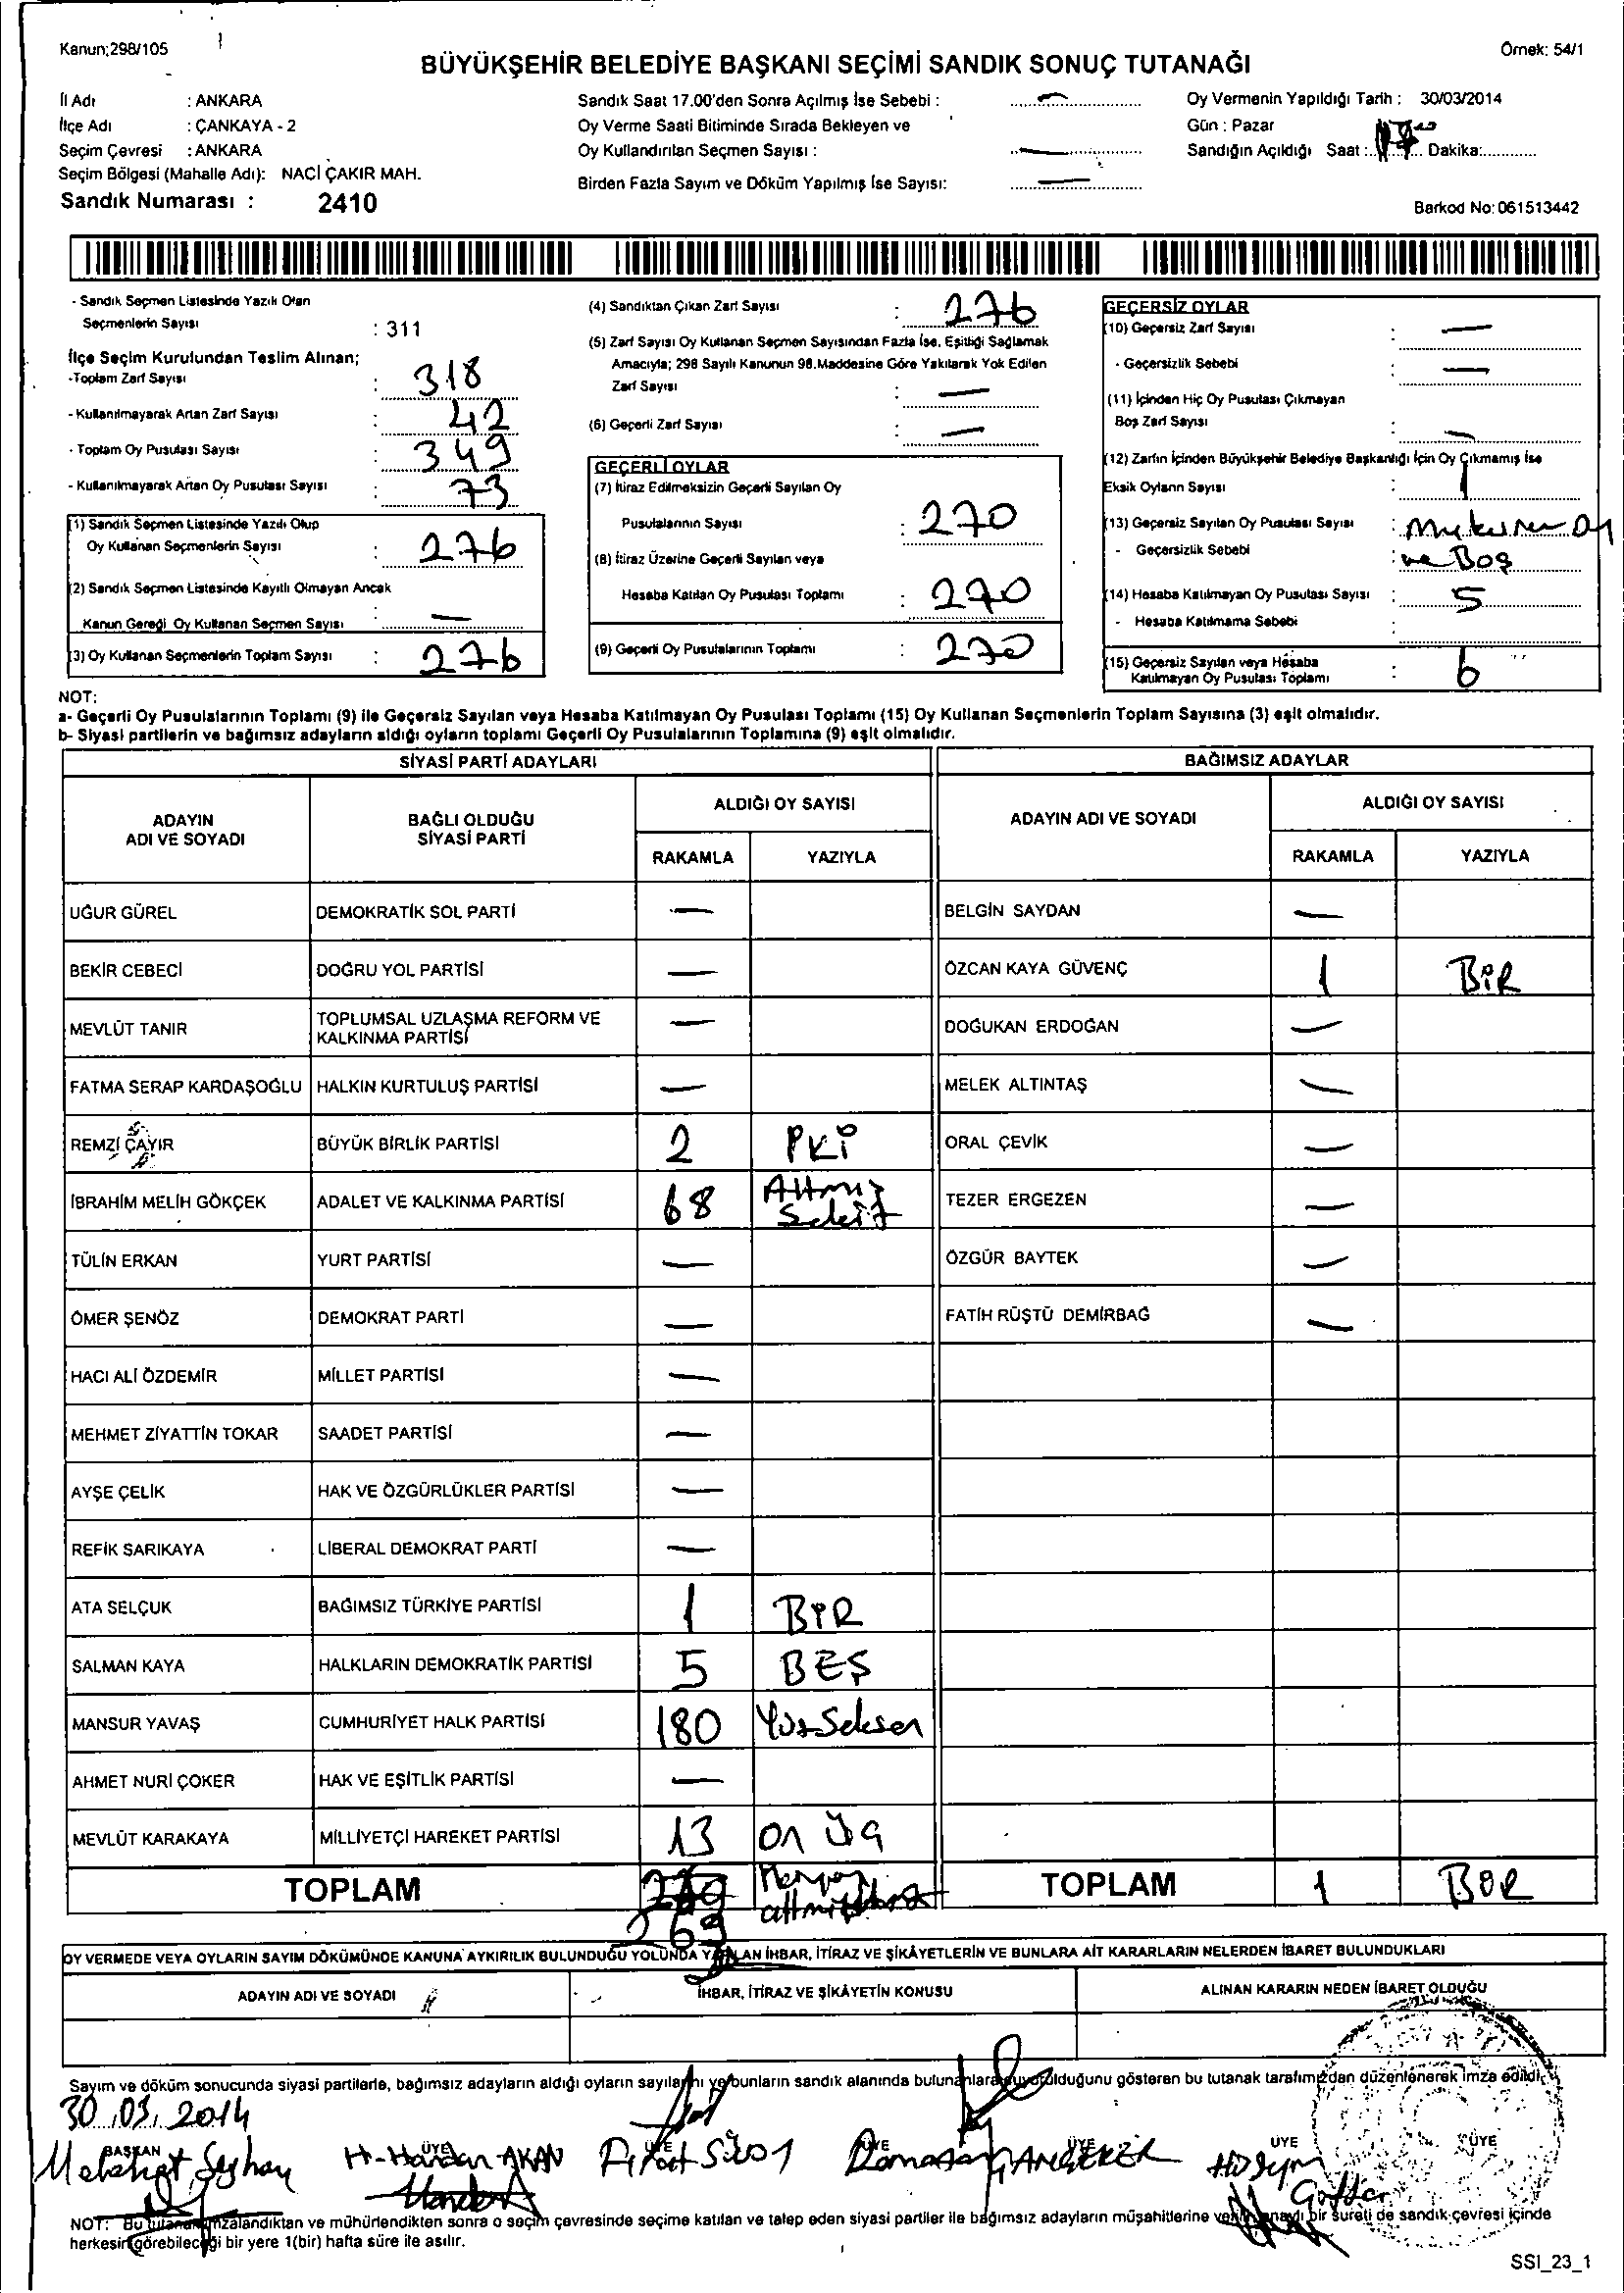 Kanun;298/105
Örnek: 54/1
BÜYÜKŞEHİR BELEDİYE BAŞKANI SEÇİMİ SANDIK SONUÇ TUTANAĞI
İl Adı : ANKARA
İlçe Adı : ÇANKAYA - 2
Seçim Çevresi : ANKARA
Seçim Bölgesi (Mahalle Adı): NACİ ÇAKIR MAH.
Sandık Numarası : 2410
Sandık Saat 17.00'den Sonra Açılmış İse Sebebi :
Oy Verme Saati Bitiminde Sırada Bekleyen ve
Oy Kullandırılan Seçmen Sayısı :
Birden Fazla Sayım ve Döküm Yapılmış İse Sayısı:
Oy Vermenin Yapıldığı Tarih : 30/03/2014
Gün : Pazar
Sandığın Açıldığı Saat : Dakika:
Barkod No: 061513442
- Sandık Seçmen Listesinde Yazılı Olan
Seçmenlerin Sayısı : 311
İlçe Seçim Kurulundan Teslim Alınan;
-Toplam Zarf Sayısı : 318
- Kullanılmayarak Artan Zarf Sayısı : 42
- Toplam Oy Pusulası Sayısı : 349
- Kullanılmayarak Artan Oy Pusulası Sayısı : 73
(1) Sandık Seçmen Listesinde Yazılı Olup
Oy Kullanan Seçmenlerin Sayısı : 276
(2) Sandık Seçmen Listesinde Kayıtlı Olmayan Ancak
Kanun Gereği Oy Kullanan Seçmen Sayısı : —
(3) Oy Kullanan Seçmenlerin Toplam Sayısı : 276
(4) Sandıktan Çıkan Zarf Sayısı : 276
(5) Zarf Sayısı Oy Kullanan Seçmen Sayısından Fazla İse, Eşitliği Sağlamak
Amacıyla; 298 Sayılı Kanunun 98.Maddesine Göre Yakılarak Yok Edilen
Zarf Sayısı : —
(6) Geçerli Zarf Sayısı : —
GEÇERLİ OYLAR
(7) İtiraz Edilmeksizin Geçerli Sayılan Oy
Pusulalarının Sayısı : 270
(8) İtiraz Üzerine Geçerli Sayılan veya
Hesaba Katılan Oy Pusulası Toplamı : 270
(9) Geçerli Oy Pusulalarının Toplamı : 270
GEÇERSİZ OYLAR
(10) Geçersiz Zarf Sayısı : —
- Geçersizlik Sebebi : —
(11) İçinden Hiç Oy Pusulası Çıkmayan
Boş Zarf Sayısı : —
(12) Zarfın İçinden Büyükşehir Belediye Başkanlığı İçin Oy Çıkmamış İse
Eksik Oyların Sayısı : 1
(13) Geçersiz Sayılan Oy Pusulası Sayısı :
- Geçersizlik Sebebi : ve Boş
(14) Hesaba Katılmayan Oy Pusulası Sayısı : 5
- Hesaba Katılmama Sebebi :
(15) Geçersiz Sayılan veya Hesaba
Katılmayan Oy Pusulası Toplamı : 6
NOT:
a- Geçerli Oy Pusulalarının Toplamı (9) ile Geçersiz Sayılan veya Hesaba Katılmayan Oy Pusulası Toplamı (15) Oy Kullanan Seçmenlerin Toplam Sayısına (3) eşit olmalıdır.
b- Siyasi partilerin ve bağımsız adayların aldığı oyların toplamı Geçerli Oy Pusulalarının Toplamına (9) eşit olmalıdır.
SİYASİ PARTİ ADAYLARI BAĞIMSIZ ADAYLAR
ADAYIN ADI VE SOYADI BAĞLI OLDUĞU SİYASİ PARTİ ALDIĞI OY SAYISI ADAYIN ADI VE SOYADI ALDIĞI OY SAYISI
RAKAMLA YAZIYLA RAKAMLA YAZIYLA
UĞUR GÜREL DEMOKRATİK SOL PARTİ — BELGİN SAYDAN —
BEKİR CEBECİ DOĞRU YOL PARTİSİ — ÖZCAN KAYA GÜVENÇ 1 BİR
MEVLÜT TANIR TOPLUMSAL UZLAŞMA REFORM VE KALKINMA PARTİSİ — DOĞUKAN ERDOĞAN —
FATMA SERAP KARDAŞOĞLU HALKIN KURTULUŞ PARTİSİ — MELEK ALTINTAŞ —
REMZİ ÇAYIR BÜYÜK BİRLİK PARTİSİ 2 İKİ ORAL ÇEVİK —
İBRAHİM MELİH GÖKÇEK ADALET VE KALKINMA PARTİSİ 68 Altmış Sekiz TEZER ERGEZEN —
TÜLİN ERKAN YURT PARTİSİ — ÖZGÜR BAYTEK —
ÖMER ŞENÖZ DEMOKRAT PARTİ — FATİH RÜŞTÜ DEMİRBAĞ —
HACI ALİ ÖZDEMİR MİLLET PARTİSİ —
MEHMET ZİYATTİN TOKAR SAADET PARTİSİ —
AYŞE ÇELİK HAK VE ÖZGÜRLÜKLER PARTİSİ —
REFİK SARIKAYA LİBERAL DEMOKRAT PARTİ —
ATA SELÇUK BAĞIMSIZ TÜRKİYE PARTİSİ 1 BİR
SALMAN KAYA HALKLARIN DEMOKRATİK PARTİSİ 5 BEŞ
MANSUR YAVAŞ CUMHURİYET HALK PARTİSİ 180 YüzSeksen
AHMET NURİ ÇOKER HAK VE EŞİTLİK PARTİSİ —
MEVLÜT KARAKAYA MİLLİYETÇİ HAREKET PARTİSİ 13 on üç
TOPLAM 269 TOPLAM 1 BİR
OY VERMEDE VEYA OYLARIN SAYIM DÖKÜMÜNDE KANUNA AYKIRILIK BULUNDUĞU YOLUNDA YAPILAN İHBAR, İTİRAZ VE ŞİKÂYETLERİN VE BUNLARA AİT KARARLARIN NELERDEN İBARET BULUNDUKLARI
ADAYIN ADI VE SOYADI İHBAR, İTİRAZ VE ŞİKÂYETİN KONUSU ALINAN KARARIN NEDEN İBARET OLDUĞU
Sayım ve döküm sonucunda siyasi partilerle, bağımsız adayların aldığı oyların sayılarını ve bunların sandık alanında bulunanlara duyurulduğunu gösteren bu tutanak tarafımızdan düzenlenerek imza edildi.
30.03.2014
BAŞKAN ÜYE ÜYE ÜYE ÜYE ÜYE ÜYE
Seyhan H-Handan AKAN
NOT: Bu tutanak imzalandıktan ve mühürlendikten sonra o seçim çevresinde seçime katılan ve talep eden siyasi partiler ile bağımsız adayların müşahitlerine verilir, onaylı bir sureti de sandık çevresi içinde
herkesin görebileceği bir yere 1(bir) hafta süre ile asılır.
SSI_23_1